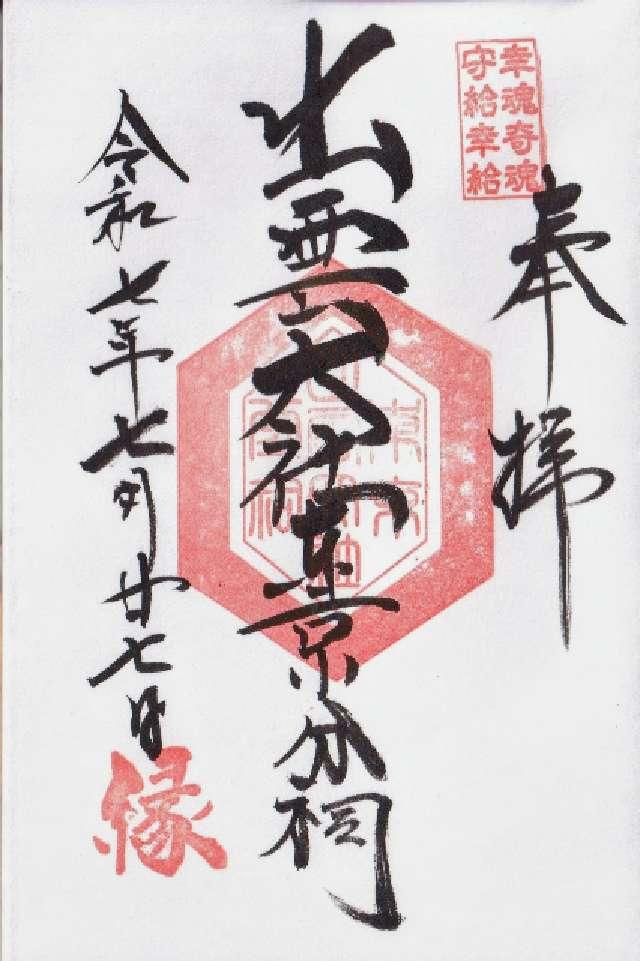 幸魂奇魂
守給幸給
奉拝
出雲大社東京分祠
令和七年七月廿七日
縁